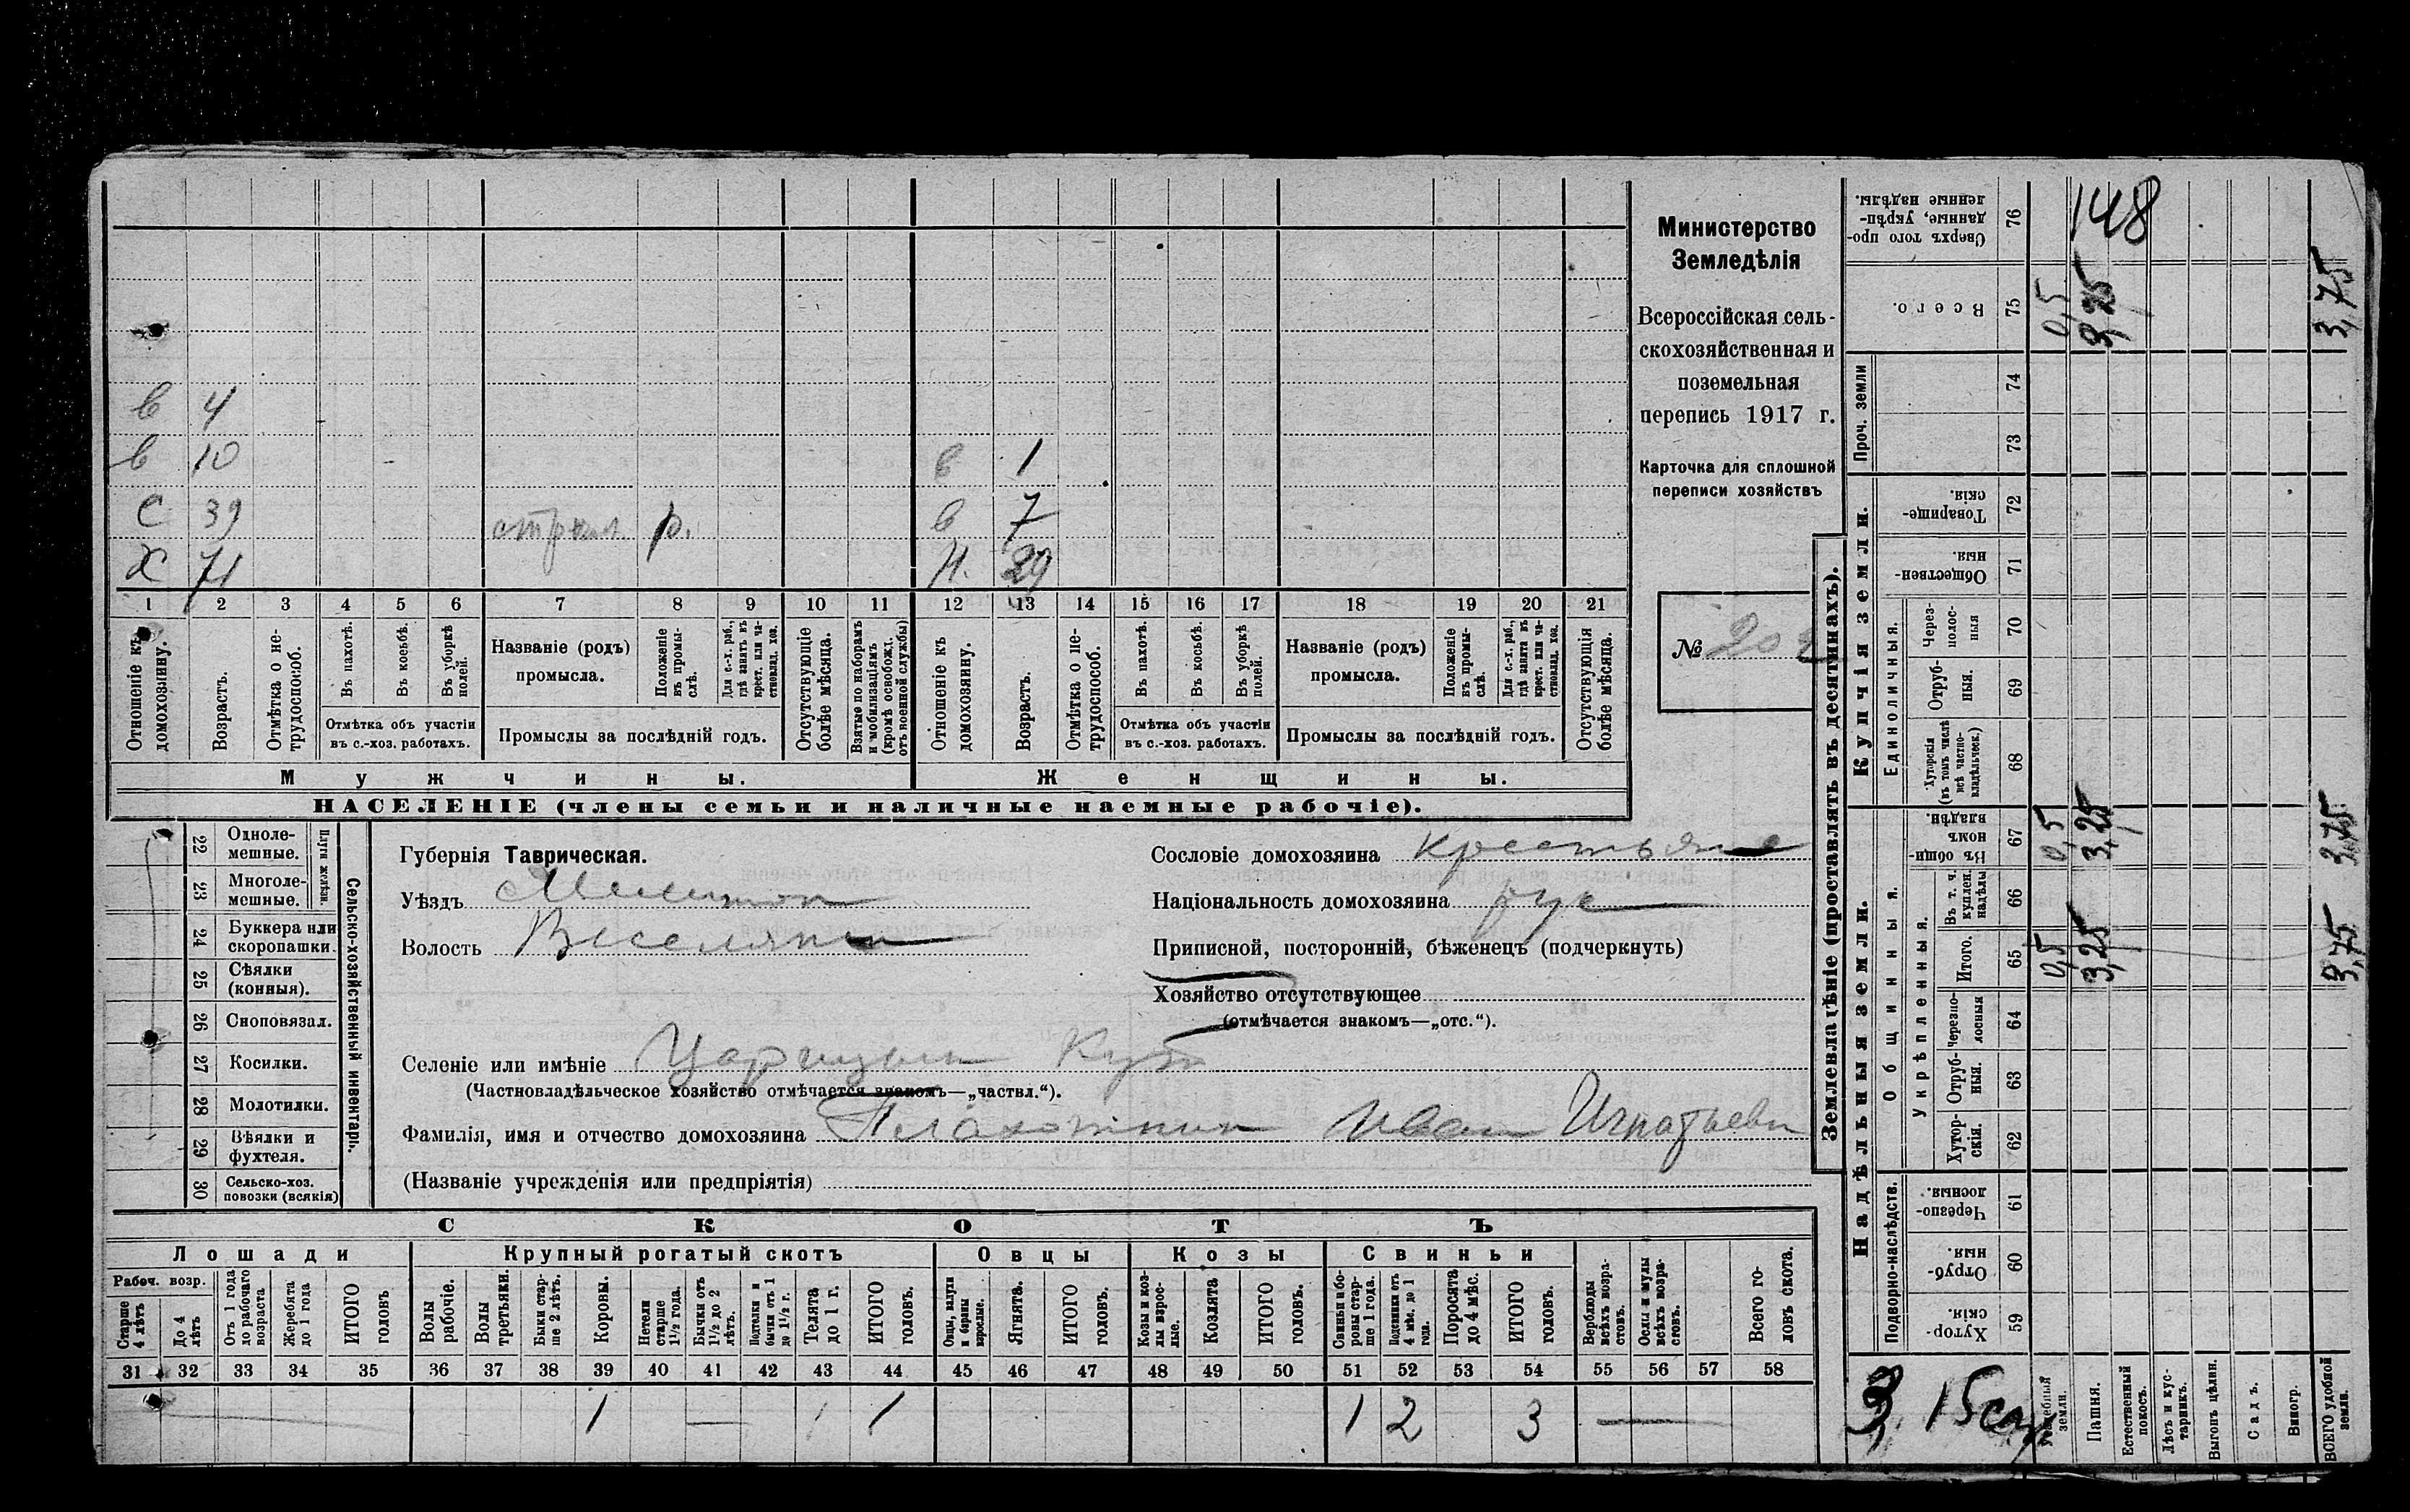 в 4
в 10
С 39 р.
Х 71
в 1
в 7
Н. 29
1 2 3 4 5 6 7 8 9 10 11 12 13 14 15 16 17 18 19 20 21
Отношеніе къ домохозяину.
Возрастъ.
Отмѣтка о не-трудоспособ.
Въ пахотѣ.
Въ косьбѣ.
Въ уборкѣ полей.
Отмѣтка объ участіи
въ с.-хоз. работахъ.
Названіе (родъ)
промысла.
Положеніе въ промы-слѣ.
Для с.-х. раб., гдѣ занятъ въ крест. или ча-стновлад. хоз.
Промыслы за послѣдній годъ.
Отсутствующіе болѣе мѣсяца.
Взятые по наборамъ и мобилизаціямъ (кромѣ освобожд. отъ военной службы)
Отношеніе къ домохозяину.
Возрастъ.
Отмѣтка о не-трудоспособ.
Въ пахотѣ.
Въ косьбѣ.
Въ уборкѣ полей.
Отмѣтка объ участіи
въ с.-хоз. работахъ.
Названіе (родъ)
промысла.
Положеніе въ промы-слѣ.
Для с.-х. раб., гдѣ занята въ крест. или ча-стновлад. хоз.
Промыслы за послѣдній годъ.
Отсутствующія болѣе мѣсяца.
Мужчины.
Женщины.
НАСЕЛЕНІЕ (члены семьи и наличные наемные рабочіе).
Министерство
Земледѣлія
Всероссійская сель-
скохозяйственная и
поземельная
перепись 1917 г.
Карточка для сплошной
переписи хозяйствъ
№
22 Одноле-мешные.
23 Многоле-мешные.
Плуги желѣзн.
24 Буккера или скоропашки.
25 Сѣялки (конныя).
26 Сноповязал.
27 Косилки.
28 Молотилки.
29 Вѣялки и фухтеля.
30 Сельско-хоз. повозки (всякія)
Сельско-хозяйственный инвентарь.
Губернія Таврическая.
Уѣздъ Мелитоп
Волость
Сословіе домохозяина крестьяне
Національность домохозяина рус
Приписной, посторонній, бѣженецъ (подчеркнуть)
Хозяйство отсутствующее
(отмѣчается знакомъ—„отс.“).
Селеніе или имѣніе Царицын Кут
(Частновладѣльческое хозяйство отмѣчается знакомъ—„частвл.“).
Фамилія, имя и отчество домохозяина Плахотник Иван Игнатьевич
(Названіе учрежденія или предпріятія)
СКОТЪ
Лошади
Крупный рогатый скотъ
Овцы
Козы
Свиньи
Рабоч. возр.
Старше 4 лѣтъ
До 4 лѣтъ
Отъ 1 года до рабочаго возраста
Жеребята до 1 года
ИТОГО головъ
Волы рабочіе.
Волы третьяки.
Быки стар-ше 2 лѣтъ.
Коровы.
Нетели старше 1½ года.
Бычки отъ 1½ до 2 лѣтъ.
Подтелки и бычки отъ 1 до 1½ г.
Телята до 1 г.
ИТОГО головъ.
Овцы, валухи и бараны взрослые.
Ягнята.
ИТОГО головъ.
Козы и коз-лы взрос-лые.
Козлята
ИТОГО головъ.
Свиньи и бо-ровы стар-ше 1 года.
Подсвинки отъ 4 мѣс. до 1 года.
Поросята до 4 мѣс.
ИТОГО головъ.
Верблюды всѣхъ возра-стовъ.
Ослы и мулы всѣхъ возра-стовъ.
Всего го-ловъ скота.
31 32 33 34 35 36 37 38 39 40 41 42 43 44 45 46 47 48 49 50 51 52 53 54 55 56 57 58
1 — 1 1 1 2 3 —
Землевладѣніе (проставлять въ десятинахъ).
Надѣльныя земли.
Купчія земли.
Проч. земли
Подворно-наслѣдств.
Общинныя.
Укрѣпленныя.
Единоличныя.
Хутор-скія. 59
Отруб-ныя. 60
Черезпо-лосныя. 61
Хутор-скія. 62
Отруб-ныя. 63
Черезпо-лосныя 64
Итого. 65 0,5 3,25 3,75
Въ т. ч. куплен. надѣлы 66
Въ общи-номъ владѣн. 67 0,5 3,25 3,75
Хуторскія (въ томъ числѣ всѣ частно-владѣльческ.) 68
Отруб-ныя. 69
Через-полос-ныя 70
Обществен-ныя. 71
Товарище-скія. 72
73
74
Всего. 75 0,5 3,25 3,75
Сверхъ того про-данные, укрѣп-ленные надѣлы. 76
148
Усадебный земли.
Пашня.
Естественный покосъ.
Лѣсъ и кус-тарникъ.
Выгонъ цѣлин.
Садъ.
Виногр.
ВСЕГО удобной земли.